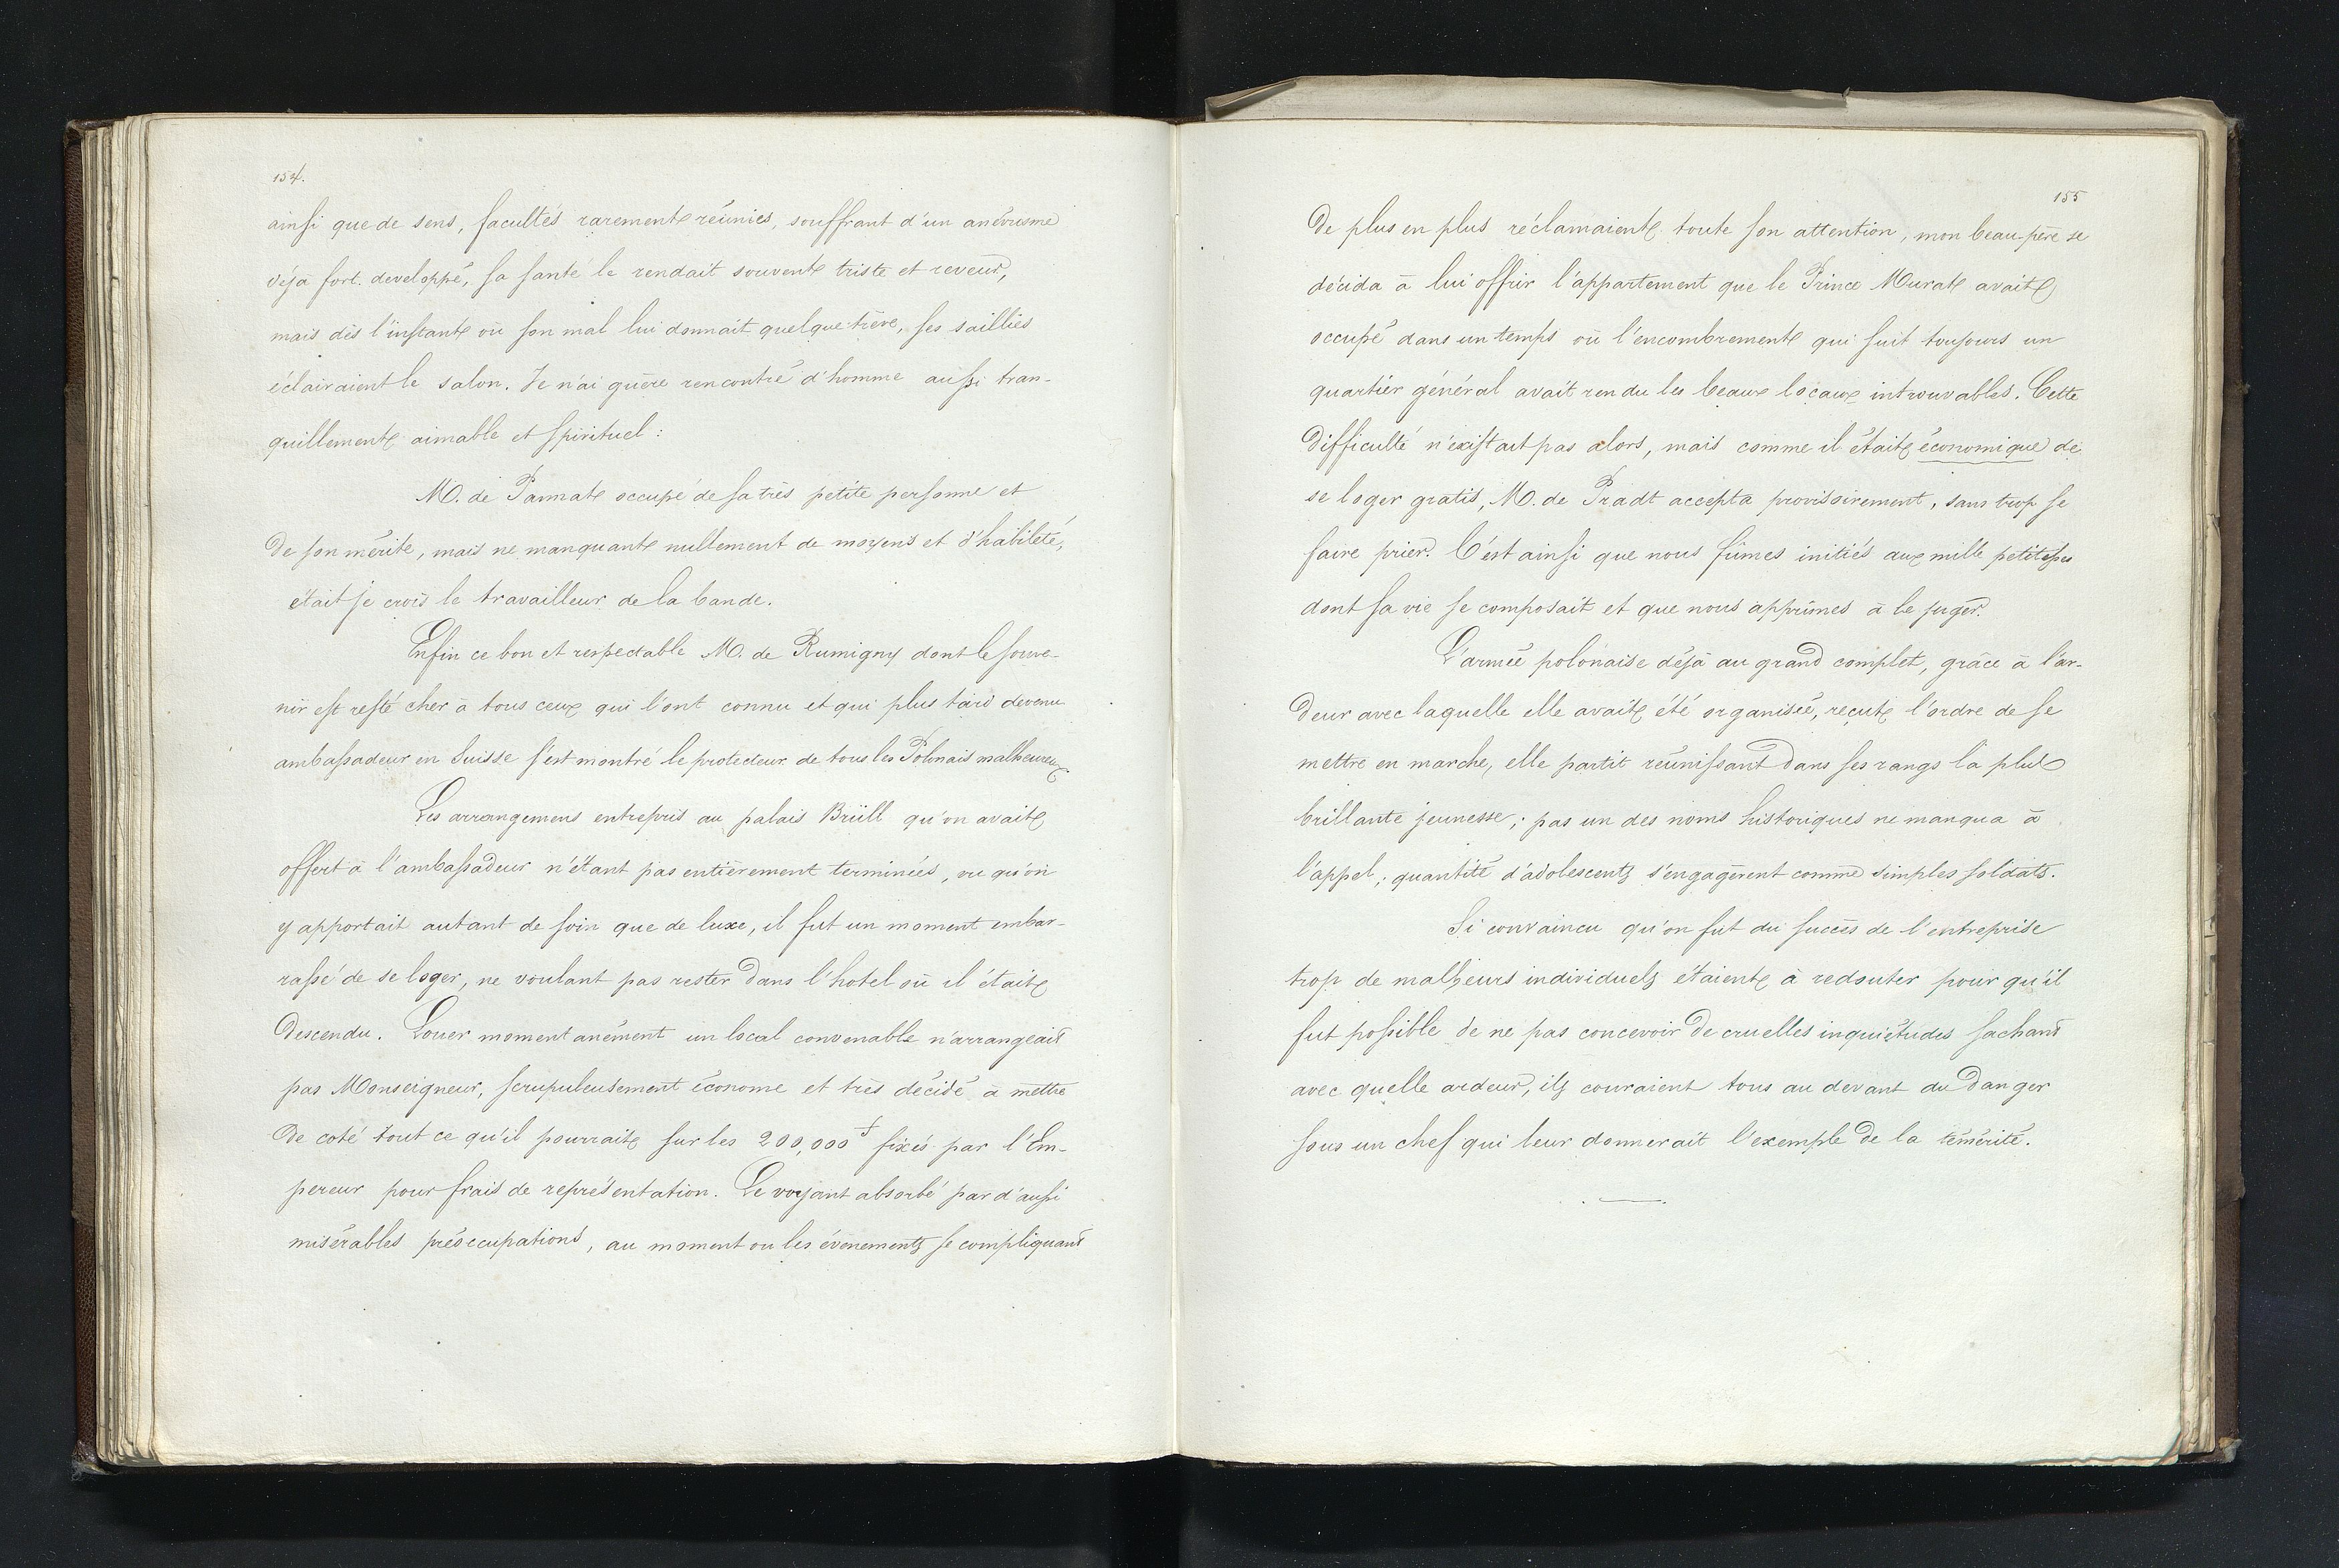 154.
ainsi que de sens, facultés rarement réunies, souffrant d'un anévrisme
déjà fort developpé, sa santé le rendait souvent triste et reveur,
mais dès l'instant où son mal lui donnait quelque trève, ses saillies
éclairaient le salon. Je n'ai guère rencontré d'homme aussi tran-
quillement aimable et spirituel :
M. de Pannat occupé de sa très petite personne et
de son mérite, mais ne manquant nullement de moyens et d'habileté,
était je crois le travailleur de la bande.
Enfin ce bon et respectable M. de Rumigny dont le souve-
nir est resté cher à tous ceux qui l'ont connu et qui plus tard devenu
ambassadeur en Suisse s'est montré le protecteur de tous les Polonais malheureux.
Les arrangemens entrepris au palais Brüll qu'on avait
offert à l'ambassadeur n'étant pas entièrement terminés, vu qu'on
y apportait autant de soin que de luxe, il fut un moment embar-
rassé de se loger, ne voulant pas rester dans l'hotel où il était
descendu. Louer momentanément un local convenable n'arrangeait
pas Monseigneur, scrupuleusement économe et très décidé à mettre
de coté tout ce qu'il pourrait sur les 200,000 f fixés par l'Em-
pereur pour frais de représentation. Le voyant absorbé par d'aussi
misérables préoccupations, au moment ou les évenements se compliquant
155
de plus en plus réclamaient toute son attention, mon beau-père se
décida à lui offrir l'appartement que le Prince Murat avait
occupé dans un temps où l'encombrement qui suit toujours un
quartier général avait rendu les beaux locaux introuvables. Cette
difficulté n'existait pas alors, mais comme il était économique de
se loger gratis, M. de Pradt accepta provisoirement, sans trop se
faire prier. C'est ainsi que nous fûmes initiés aux mille petitesses
dont sa vie se composait et que nous apprîmes à le juger.
L'armée polonaise déjà au grand complet, grâce à l'ar-
deur avec laquelle elle avait été organisée, reçut l'ordre de se
mettre en marche, elle partit réunissant dans ses rangs la plus
brillante jeunesse; pas un des noms historiques ne manqua à
l'appel; quantité d'adolescents s'engagèrent comme simples soldats.
Si convaincu qu'on fut du succès de l'entreprise
trop de malheurs individuels étaient à redouter pour qu'il
fut possible de ne pas concevoir de cruelles inquiétudes sachant
avec quelle ardeur, ils couraient tous au devant du danger
sous un chef qui leur donnerait l'exemple de la témérité.